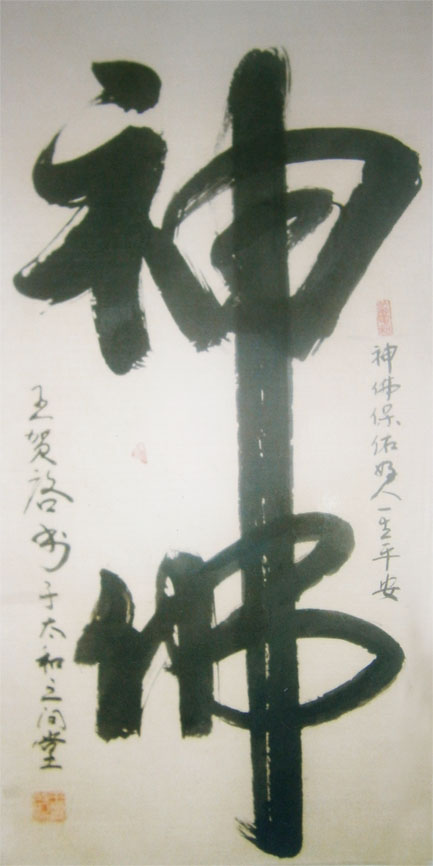 神佛
神佛保佑好人一生平安
王贺啓书于太和之间堂